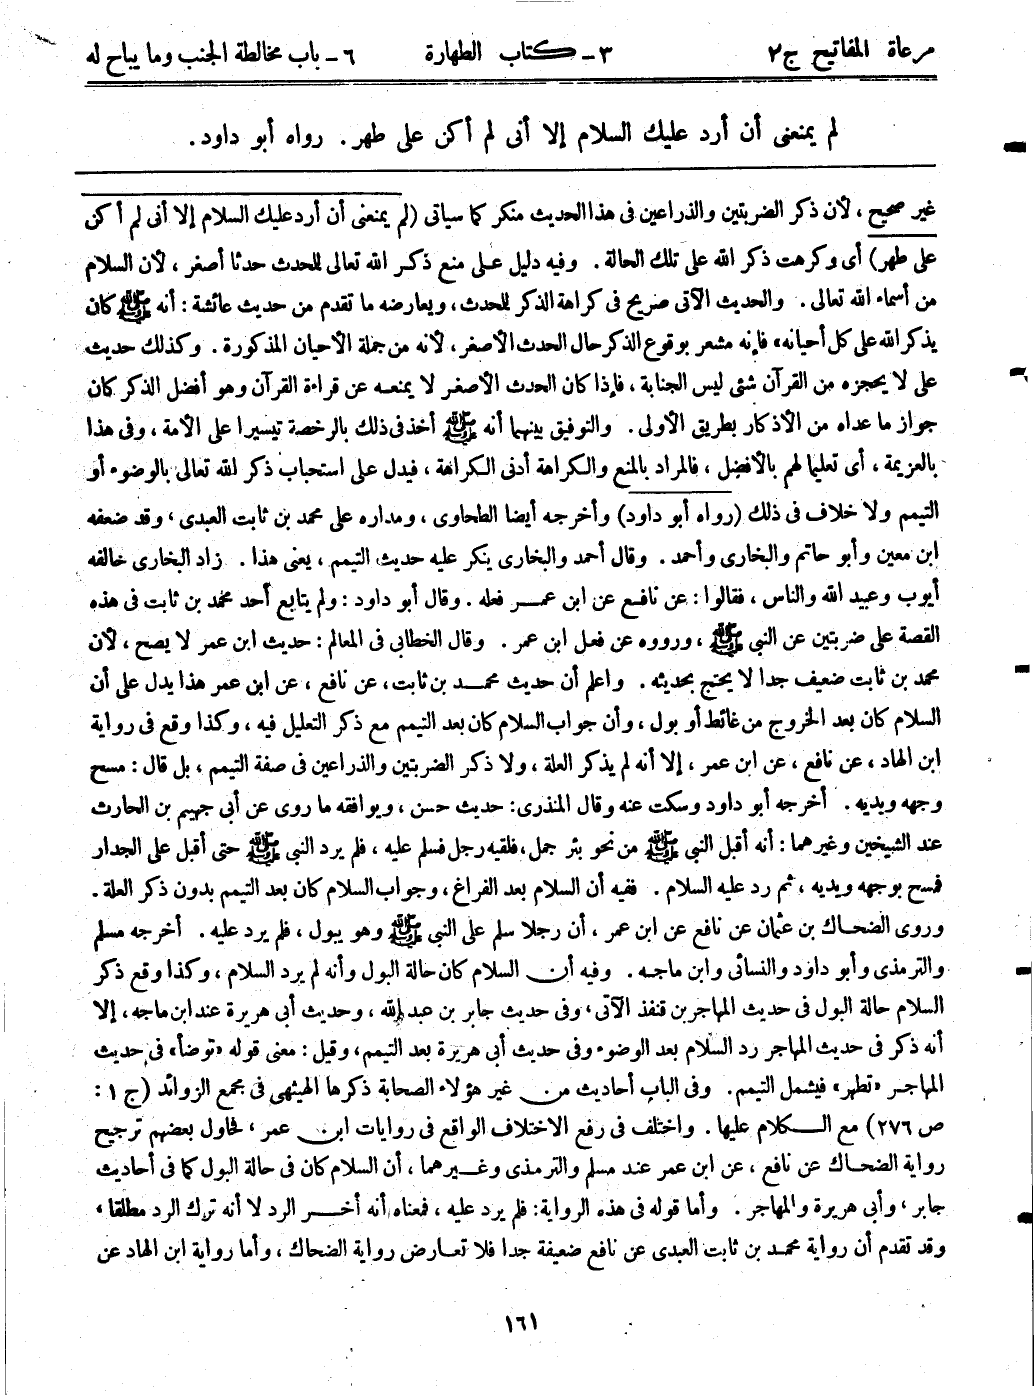 مرعاة المفاتيح ج ٢ ٣ - كتاب الطهارة ٦ - باب مخالطة الجنب وما يباح له
لم يمنعنى أن أرد عليك السلام إلا أنى لم أكن على طهر. رواه أبو داود.
غير صحيح، لأن ذكر الضربتين والذراعين فى هذا الحديث منكر كما سياتى (لم يمنعنى أن أرد عليك السلام إلا أنى لم أكن
على طهر) أى وكرهت ذكر الله على تلك الحالة. وفيه دليل على منع ذكر الله تعالى للحدث حدثا أصغر، لأن السلام
من أسماء الله تعالى. والحديث الآتى صريح فى كراهة الذكر للحدث، ويعارضه ما تقدم من حديث عائشة: أنه ﷺ كان
يذكر الله على كل أحيانه، فإنه مشعر بوقوع الذكر حال الحدث الأصغر، لأنه من جملة الأحيان المذكورة. وكذلك حديث
على لا يحجزه من القرآن شئى ليس الجنابة، فإذا كان الحدث الأصغر لا يمنعه عن قراءة القرآن وهو أفضل الذكر كان
جواز ما عداه من الأذكار بطريق الأولى. والتوفيق بينهما أنه ﷺ أخذ فى ذلك بالرخصة تيسيرا على الأمة، وفى هذا
بالعزيمة، أى تعليما لهم بالأفضل، فالمراد بالمنع والكراهة أدنى الكراهة، فيدل على استحباب ذكر الله تعالى بالوضوء أو
التيمم ولا خلاف فى ذلك (رواه أبو داود) وأخرجه أيضا الطحاوى، ومداره على محمد بن ثابت العبدى، وقد ضعفه
ابن معين وأبو حاتم والبخارى وأحمد. وقال أحمد والبخارى ينكر عليه حديث التيمم، يعنى هذا. زاد البخارى خالفه
أيوب وعبيد الله والناس، فقالوا: عن نافع عن ابن عمر فعله. وقال أبو داود: ولم يتابع أحد محمد بن ثابت فى هذه
القصة على ضربتين عن النبى ﷺ، ورووه عن فعل ابن عمر. وقال الخطابى فى المعالم: حديث ابن عمر لا يصح، لأن
محمد بن ثابت ضعيف جدا لا يحتج بحديثه. واعلم أن حديث محمد بن ثابت، عن نافع، عن ابن عمر هذا يدل على أن
السلام كان بعد الخروج من غائط أو بول، وأن جواب السلام كان بعد التيمم مع ذكر التعليل فيه، وكذا وقع فى رواية
ابن الهاد، عن نافع، عن ابن عمر، إلا أنه لم يذكر العلة، ولا ذكر الضربتين والذراعين فى صفة التيمم، بل قال: مسح
وجهه ويديه. أخرجه أبو داود وسكت عنه وقال المنذرى: حديث حسن، ويوافقه ما روى عن أبى جهيم بن الحارث
عند الشيخين وغيرهما: أنه أقبل النبى ﷺ من نحو بئر جمل، فلقيه رجل فسلم عليه، فلم يرد النبى ﷺ حتى أقبل على الجدار
فمسح بوجهه ويديه، ثم رد عليه السلام. ففيه أن السلام بعد الفراغ، وجواب السلام كان بعد التيمم بدون ذكر العلة.
وروى الضحاك بن عثمان عن نافع عن ابن عمر، أن رجلا سلم على النبى ﷺ وهو يبول، فلم يرد عليه. أخرجه مسلم
والترمذى وأبو داود والنسائى وابن ماجه. وفيه أن السلام كان حالة البول وأنه لم يرد السلام، وكذا وقع ذكر
السلام حالة البول فى حديث المهاجر بن قنفذ الآتى، وفى حديث جابر بن عبد الله، وحديث أبى هريرة عند ابن ماجه، إلا
أنه ذكر فى حديث المهاجر رد السلام بعد الوضوء وفى حديث أبى هريرة بعد التيمم، وقيل: معنى قوله «توضأ» فى حديث
المهاجر «تطهر» فيشمل التيمم. وفى الباب أحاديث من غير هؤلاء الصحابة ذكرها الهيثمى فى مجمع الزوائد (ج ١:
ص ٢٧٦) مع الكلام عليها. واختلف فى رفع الاختلاف الواقع فى روايات ابن عمر، فحاول بعضهم ترجيح
رواية الضحاك عن نافع، عن ابن عمر عند مسلم والترمذى وغيرهما، أن السلام كان فى حالة البول كما فى أحاديث
جابر، وأبى هريرة والمهاجر. وأما قوله فى هذه الرواية: فلم يرد عليه، فمعناه أنه أخر الرد لا أنه ترك الرد مطلقا،
وقد تقدم أن رواية محمد بن ثابت العبدى عن نافع ضعيفة جدا فلا تعارض رواية الضحاك، وأما رواية ابن الهاد عن
١٦١